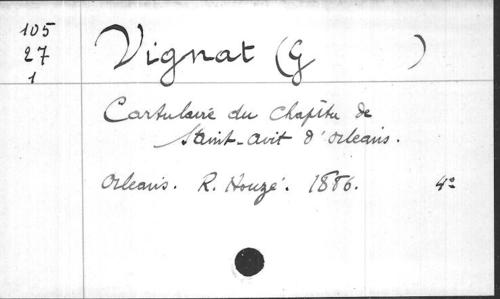 105
27
1
Vignat (G )
Cartulaire du chapitre de
Saint-Avit d'Orleans.
Orleans. R. Houzé. 1886. 4º